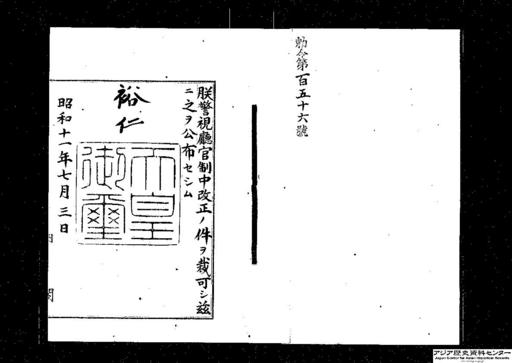 勅令第百五十六號
朕警視廳官制中改正ノ件ヲ裁可シ茲
ニ之ヲ公布セシム
裕仁
天皇御璽
昭和十一年七月三日
アジア歴史資料センター
Japan Center for Asian Historical Records